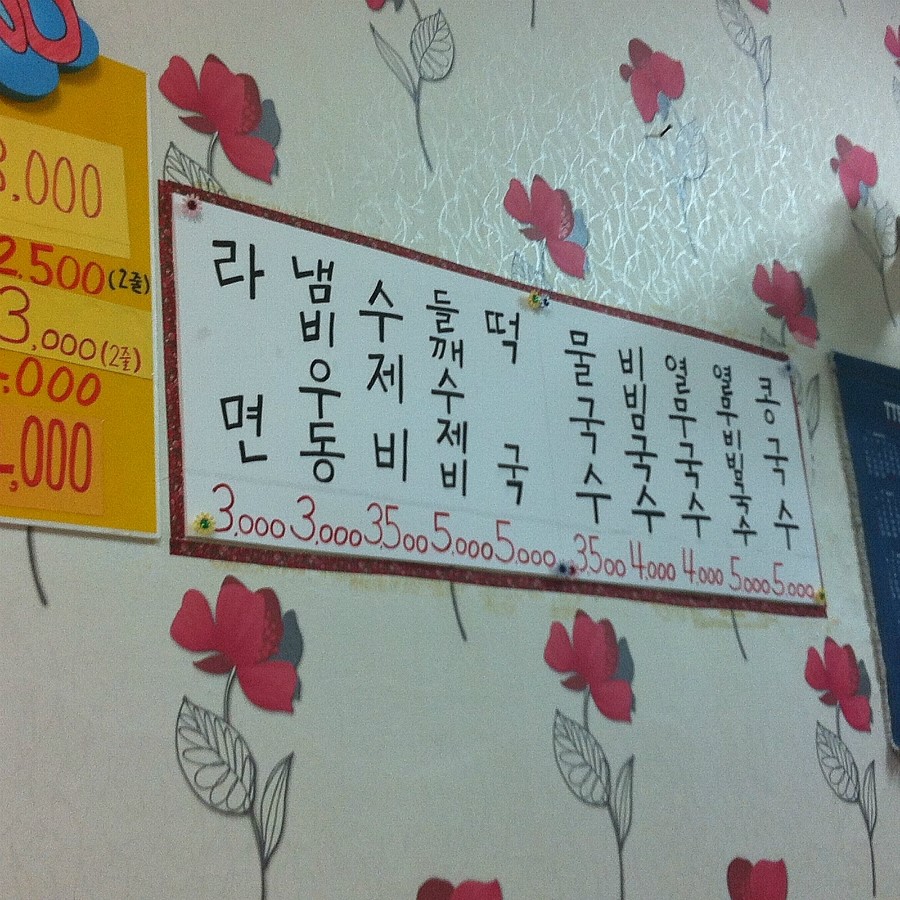 3,000
2,500(2줄)
3,000(2줄)
,000
,000
라면 3,000
냄비우동 3,000
수제비 3,500
들깨수제비 5,000
떡국 5,000
물국수 3,500
비빔국수 4,000
열무국수 4,000
열무비빔국수 5,000
콩국수 5,000